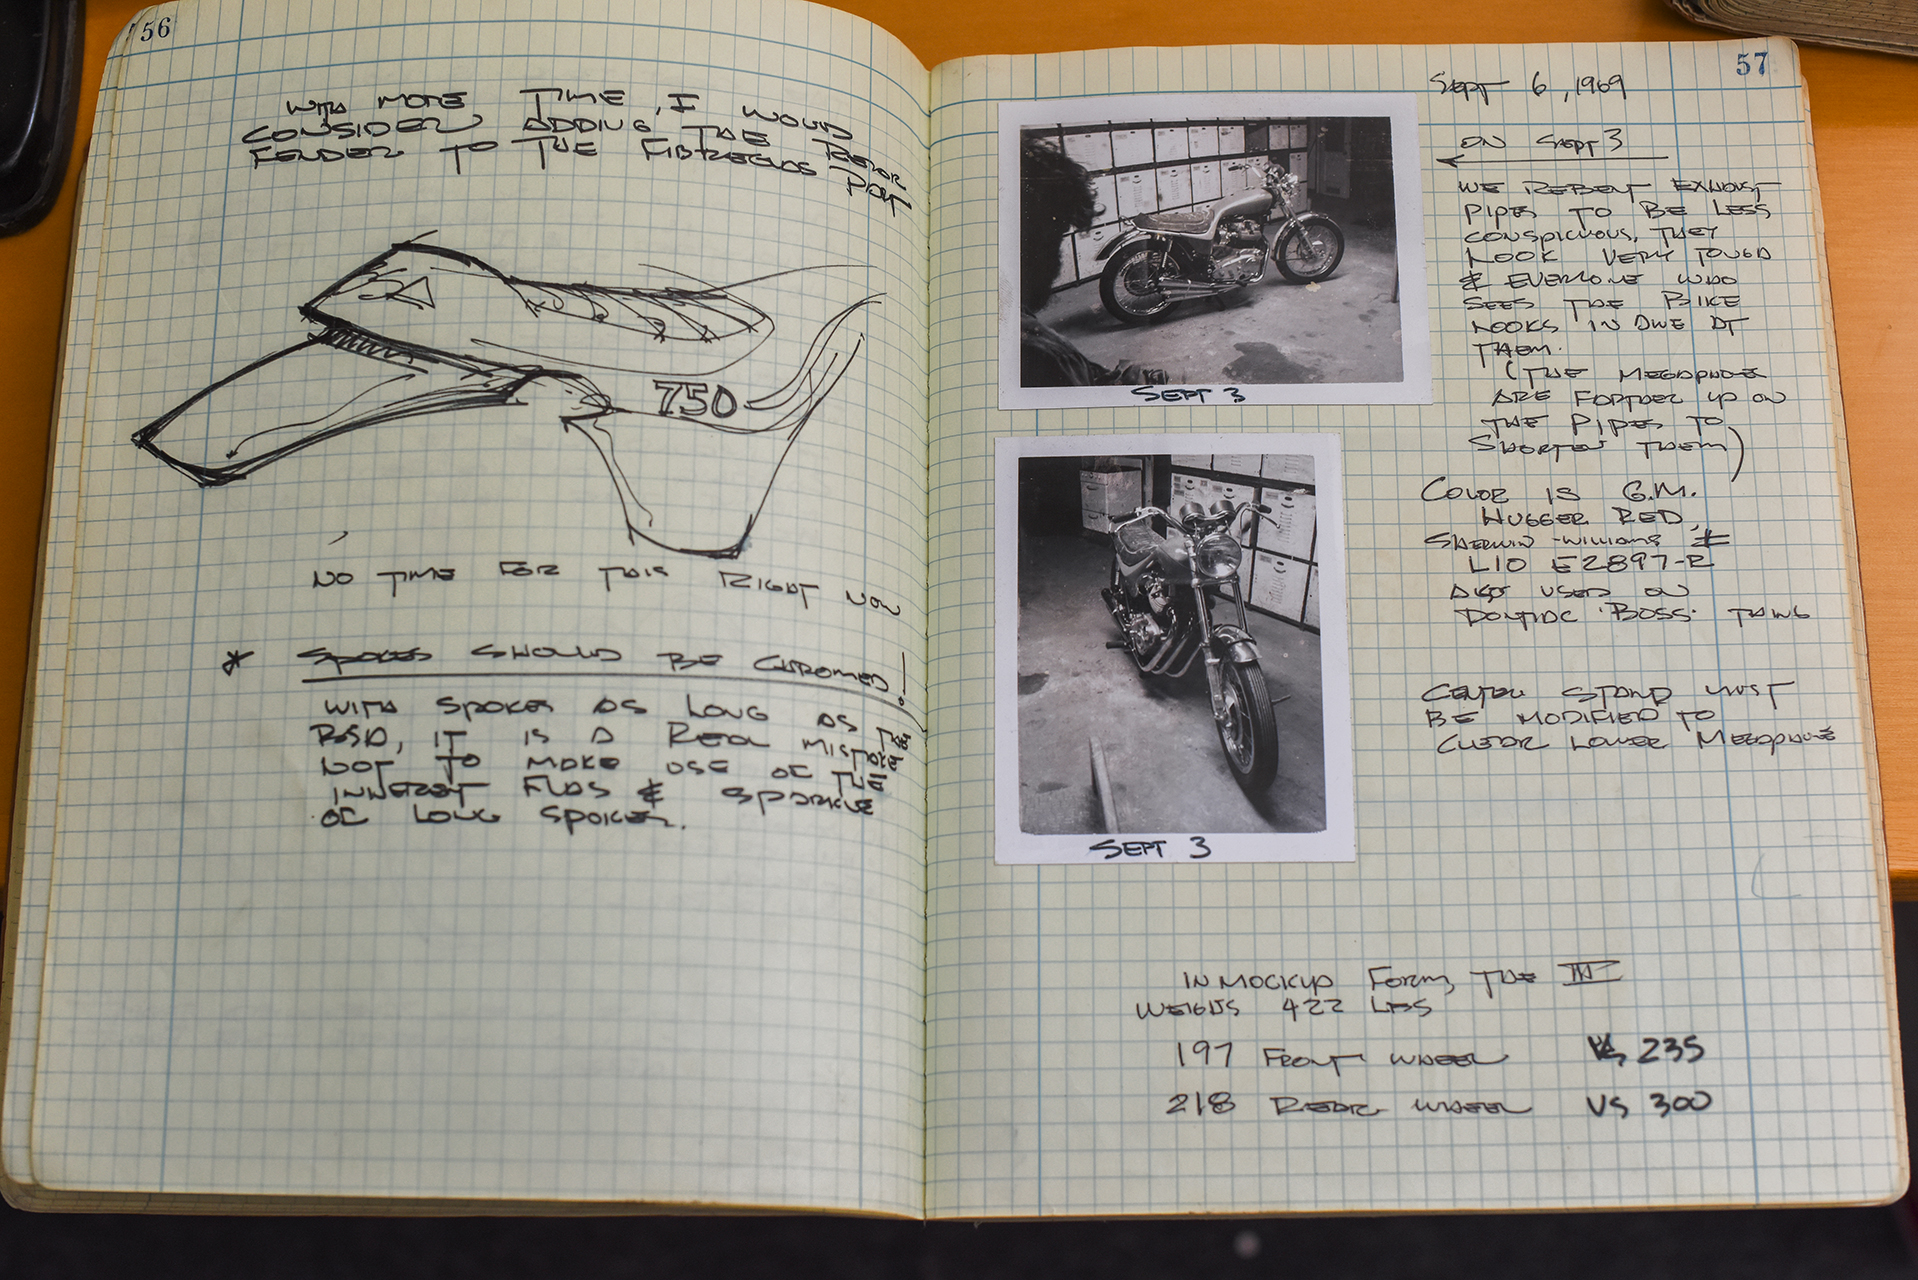 56
WITH MORE TIME, I WOULD
CONSIDER ADDING THE REAR
FENDER TO THE FIBREGLAS PART
750
NO TIME FOR THIS RIGHT NOW
* SPOKES SHOULD BE CHROMED!
WITH SPOKES AS LONG AS THE
BSA, IT IS A REAL MISTAKE
NOT TO MAKE USE OF THE
INHERENT FLASH & SPARKLE
OF LONG SPOKES.
57
SEPT 6, 1969
ON SEPT 3
WE REBENT EXHAUST
PIPES TO BE LESS
CONSPICUOUS, THEY
LOOK VERY TOUGH
& EVERYONE WHO
SEES THE BIKE
LOOKS IN AWE AT
THEM.
(THE MEGAPHONES
ARE FURTHER UP ON
THE PIPES TO
SHORTEN THEM)
COLOR IS G.M.
HUGGER RED,
SHERWIN-WILLIAMS #
L10 E2897-R
ALSO USED ON
PONTIAC 'BOSS' TANKS
CENTER STAND MUST
BE MODIFIED TO
CLEAR LOWER MEGAPHONE
SEPT 3
SEPT 3
IN MOCKUP FORM, THE III
WEIGHS 422 LBS
197 FRONT WHEEL VS 235
218 REAR WHEEL VS 300